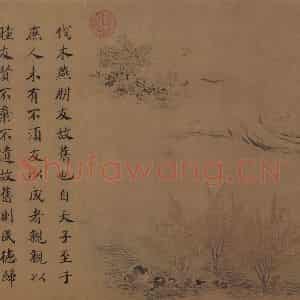 伐木燕朋友故舊也自天子至于
庶人未有不須友以成者親親以
睦友賢不棄不遺故舊則民德歸
Shufawang.CN